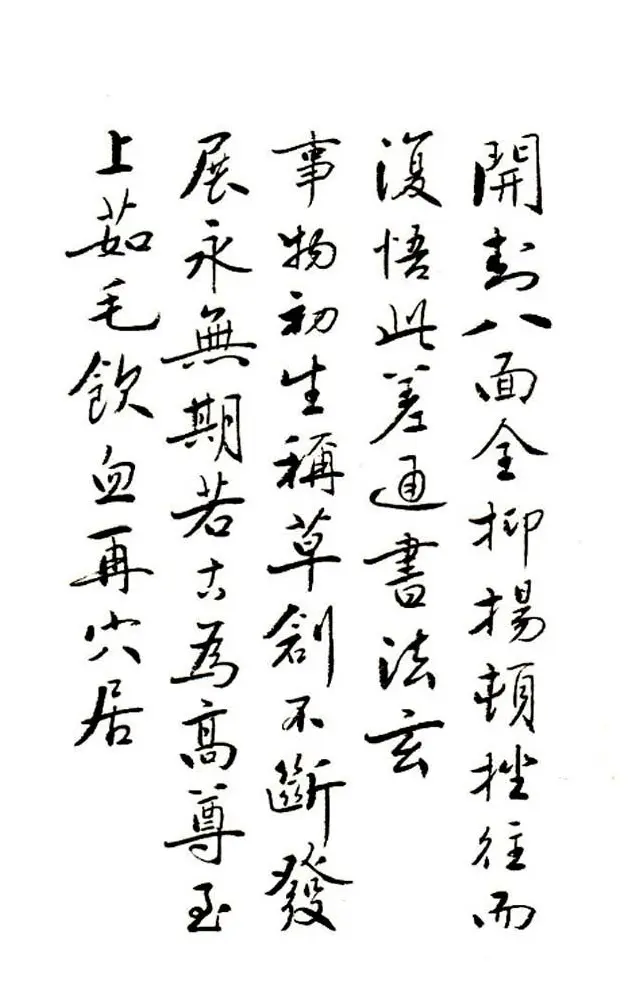 開封八面全抑揚頓挫往而
復悟此差通書法玄
事物初生稱草創不斷發
展永無期若古為高尊至
上茹毛飲血再穴居